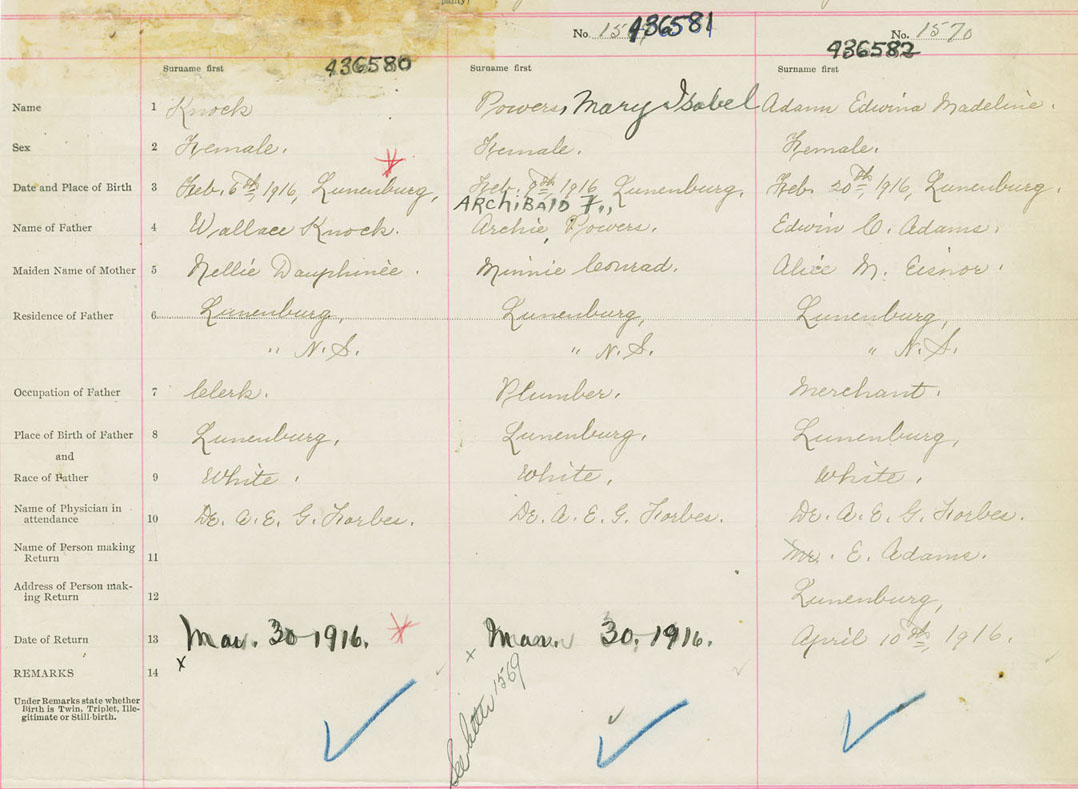 No. 436581
No. 1570
436580
436582
Surname first
Surname first
Surname first
Name 1 Knock
Powers, Mary Isabel
Adams Edwina Madeline.
Sex 2 Female.
Female.
Female.
Date and Place of Birth 3 Feb. 6th 1916, Lunenburg,
Feb. 8th 1916, Lunenburg,
Feb. 20th 1916, Lunenburg.
ARCHIBALD F.,
Name of Father 4 Wallace Knock.
Archie Powers.
Edwin C. Adams.
Maiden Name of Mother 5 Nellie Dauphinée.
Minnie Conrad.
Alice M. Eisnor.
Residence of Father 6 Lunenburg,
Lunenburg,
Lunenburg,
" N.S.
" N.S.
" N.S.
Occupation of Father 7 Clerk.
Plumber.
Merchant.
Place of Birth of Father 8 Lunenburg,
Lunenburg,
Lunenburg,
and
Race of Father 9 White.
White,
White.
Name of Physician in
attendance 10 Dr. A. E. G. Forbes.
Dr. A. E. G. Forbes.
Dr. A. E. G. Forbes.
Name of Person making
Return 11
E. Adams.
Address of Person mak-
ing Return 12
Lunenburg,
Date of Return 13 Mar. 30 1916.
Mar. 30, 1916.
April 10th, 1916.
REMARKS 14
Under Remarks state whether
Birth is Twin, Triplet, Ille-
gitimate or Still-birth.
See letter 1569